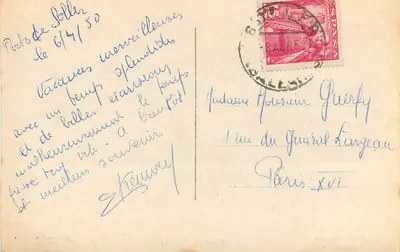 Porto de Sóller
le 6/4/50
Vacances merveilleuses
avec un temps splendide
et de belles excursions
malheureusement le temps
passe trop vite - A bientôt
et meilleurs souvenirs
ESPAÑA
Madame Monsieur Guerfy
1 rue du Général Largeau
Paris XVI